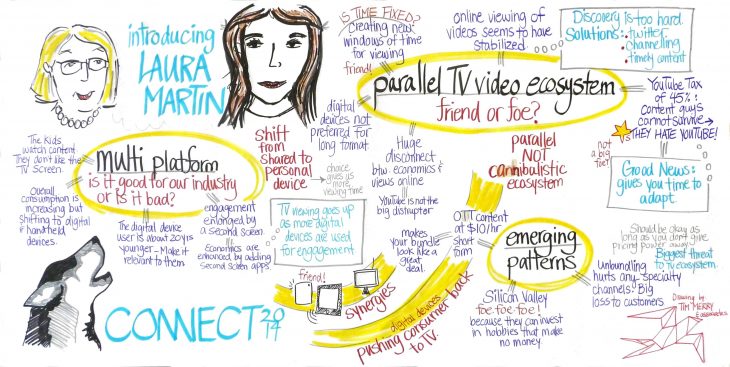 introducing
LAURA
MARTIN
IS TIME FIXED?
Creating new
windows of time
for viewing
friend!
online viewing of
videos seems to have
stabilized
Discovery is too hard.
Solutions:
• twitter
• channelling
• timely content
parallel TV video ecosystem
friend or foe?
YouTube Tax
of 45%:
Content guys
cannot survive→
THEY HATE YOUTUBE!
not
a big
foe!
Good News:
gives you time to
adapt.
digital
devices not
preferred for
long format
Huge
disconnect
btw. economics &
views online
YouTube is not the
big disruptor
parallel
NOT
cannibalistic
ecosystem
The kids
watch content
They don't like the
TV Screen.
multi platform
is it good for our industry
or is it bad?
shift
from
shared to
personal
device
choice
gives us
more
viewing time
Overall
consumption is
increasing but
shifting to digital
& handheld
devices.
The digital device
user is about 20 yrs
younger - Make it
relevant to them
engagement
enhanced by
a second screen
Economics are
enhanced by adding
second screen apps.
TV viewing goes up
as more digital
devices are used
for engagement
makes
your bundle
look like a
great
deal.
OTT content
at $10/hr
short
form
emerging
patterns
Should be okay as
long as you don't give
pricing power away
Biggest threat
to TV ecosystem.
Unbundling
hurts any specialty
channels. Big
loss to customers
Silicon Valley
foe foe foe!
because they can invest
in hobbies that make
no money
friend!
synergies
digital devices
pushing consumer back
to TV.
CONNECT 2014
Drawing by
TIM MERRY
& associates